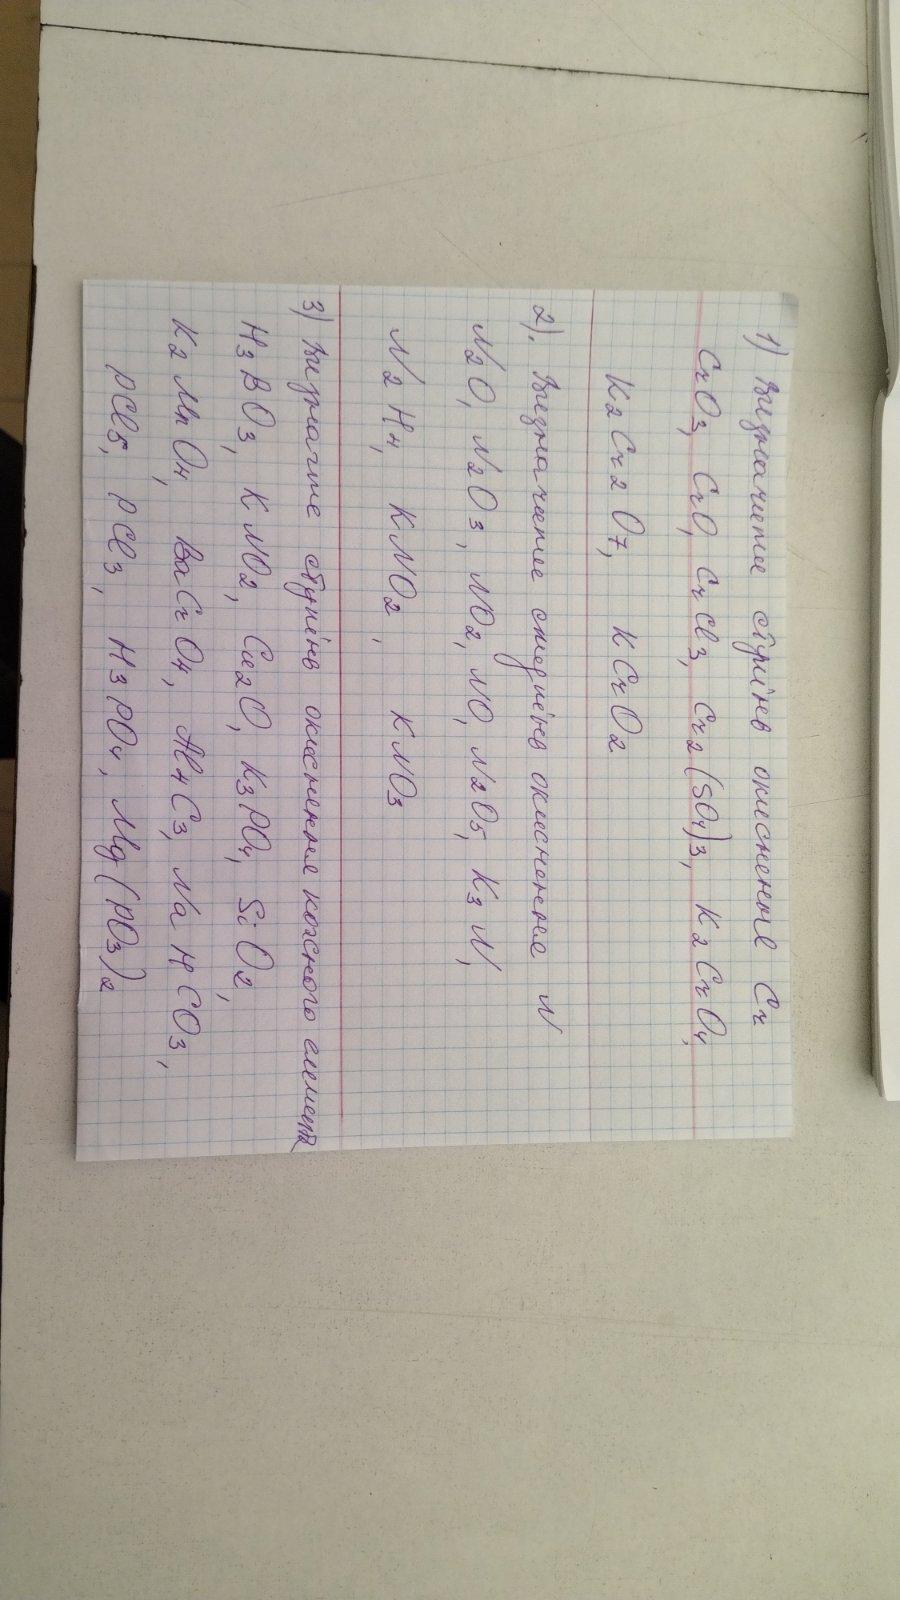 1) Визначити ступінь окиснення Cr
CrO3, CrO, CrCl3, Cr2(SO4)3, K2CrO4,
K2Cr2O7, KCrO2
2). Визначити ступінь окиснення N
N2O, N2O3, NO2, NO, N2O5, K3N,
N2H4, KNO2, KNO3
3) Визначте ступінь окиснення кожного елемента
H3BO3, KNO2, Cu2O, K3PO4, SiO2,
K2MnO4, BaCrO4, Al4C3, NaHCO3,
PCl5, PCl3, H3PO4, Mg(PO3)2